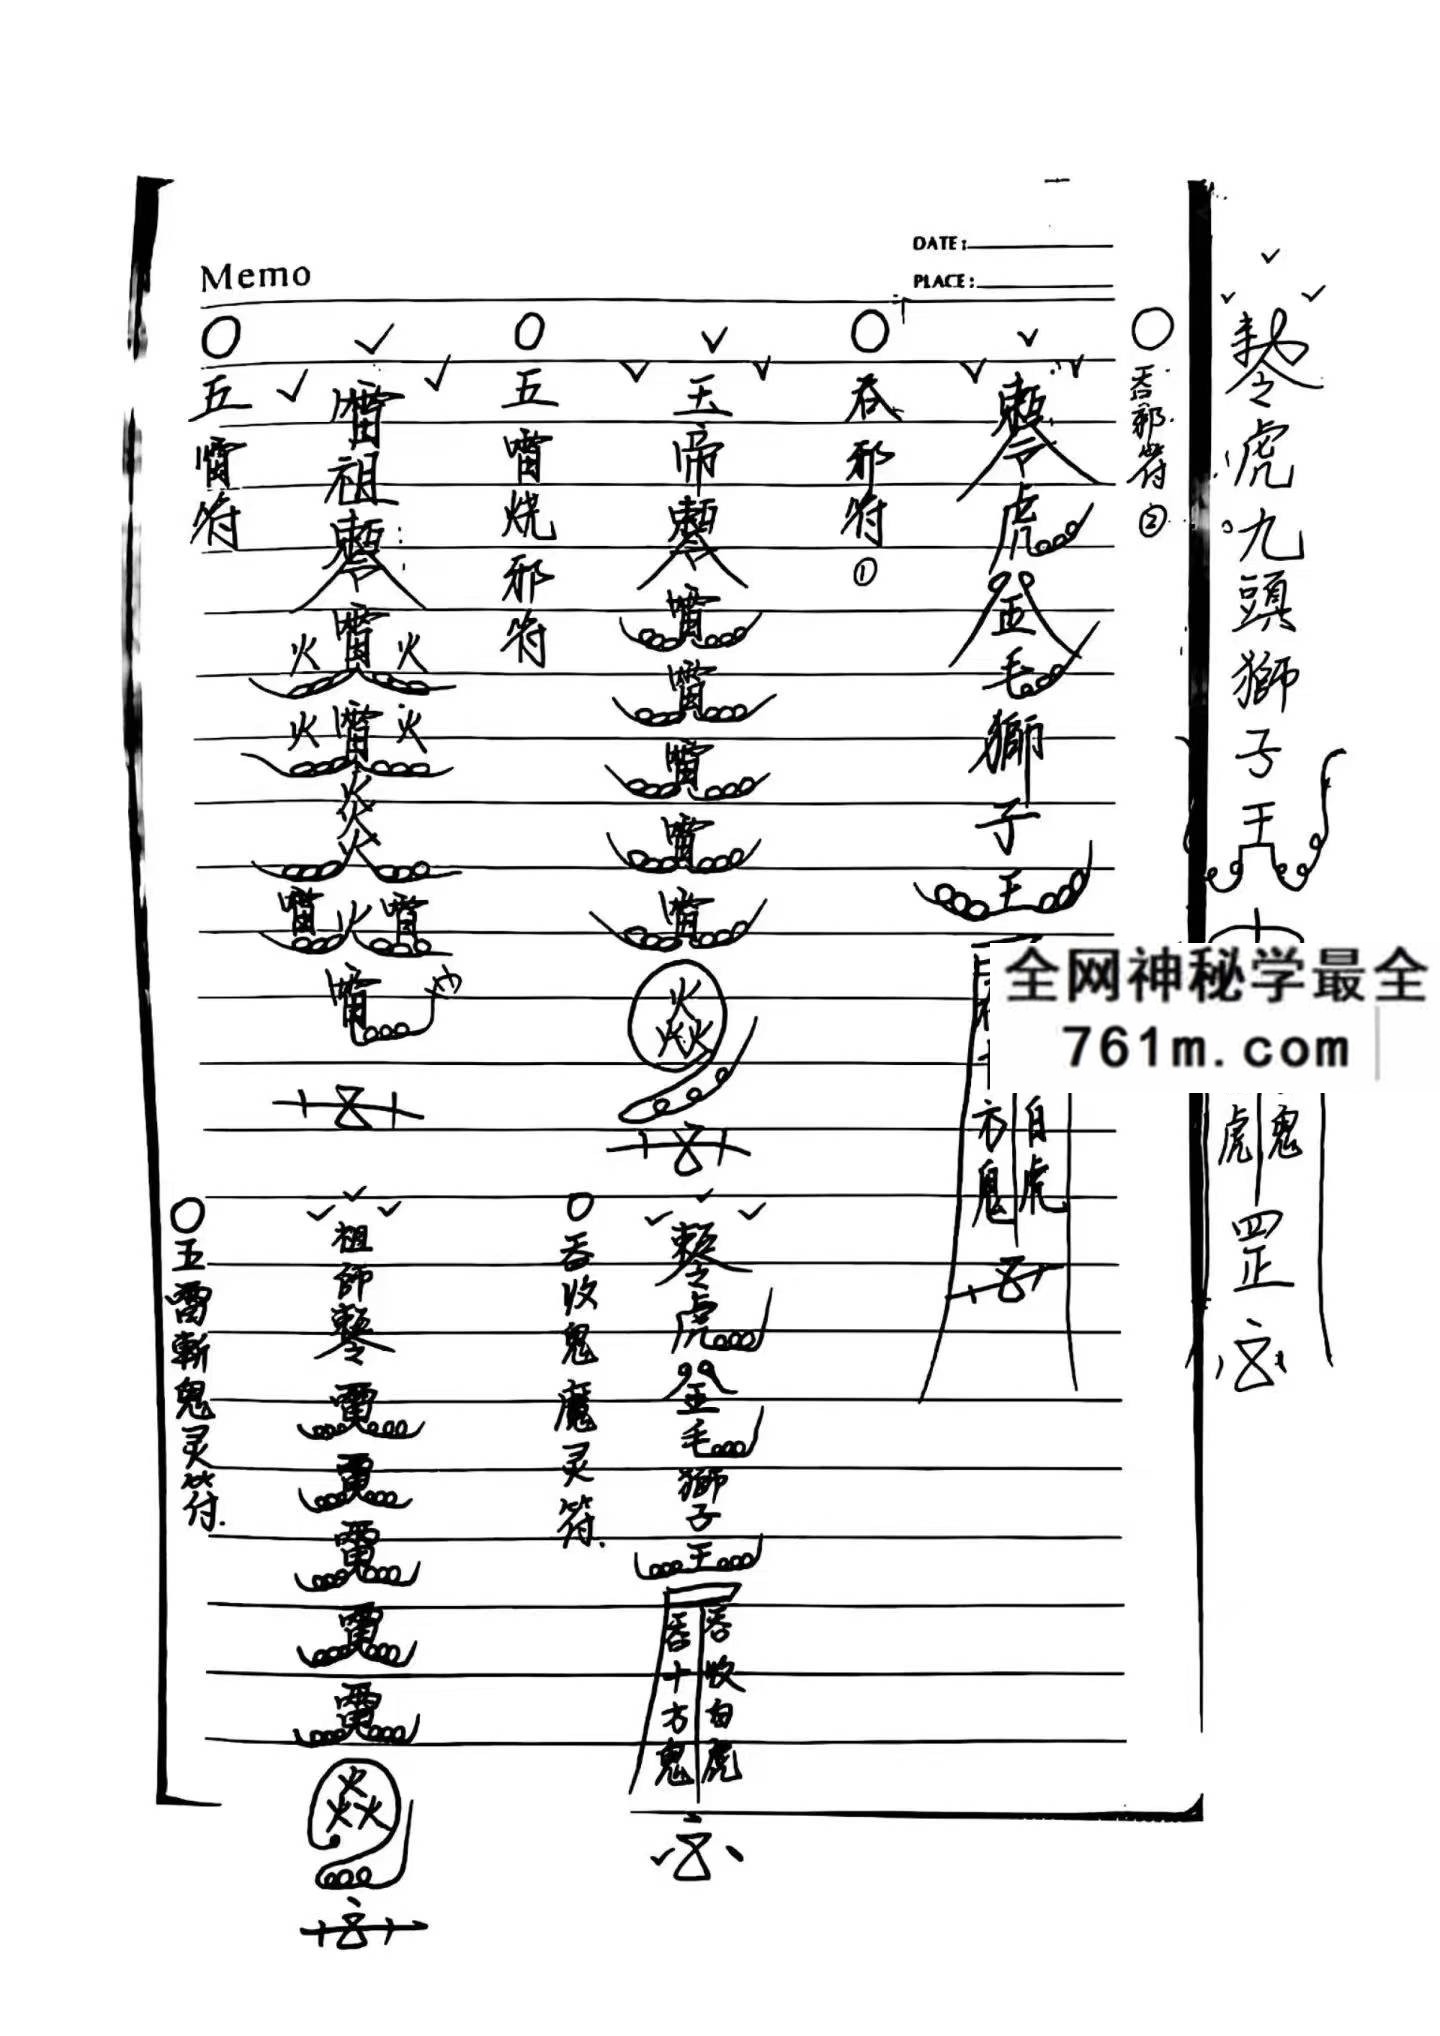 Memo
DATE:
PLACE:
五雷符
雷祖敕令
雷
火 火
雷
火 火
炎火
雷火雷
雷
五雷烧邪符
玉帝敕令
雷
雷
雷
雷
雷
焱
吞邪符①
敕令虎金毛獅子王
方鬼
白虎
吞邪符②
敕令虎九頭獅子王
虎
鬼
罡
全网神秘学最全
761m.com
五雷斬鬼灵符.
祖師敕令
雷
雷
雷
雷
雷
焱
吞收鬼魔灵符.
敕令虎金毛獅子王
吞十方鬼
吞收白虎